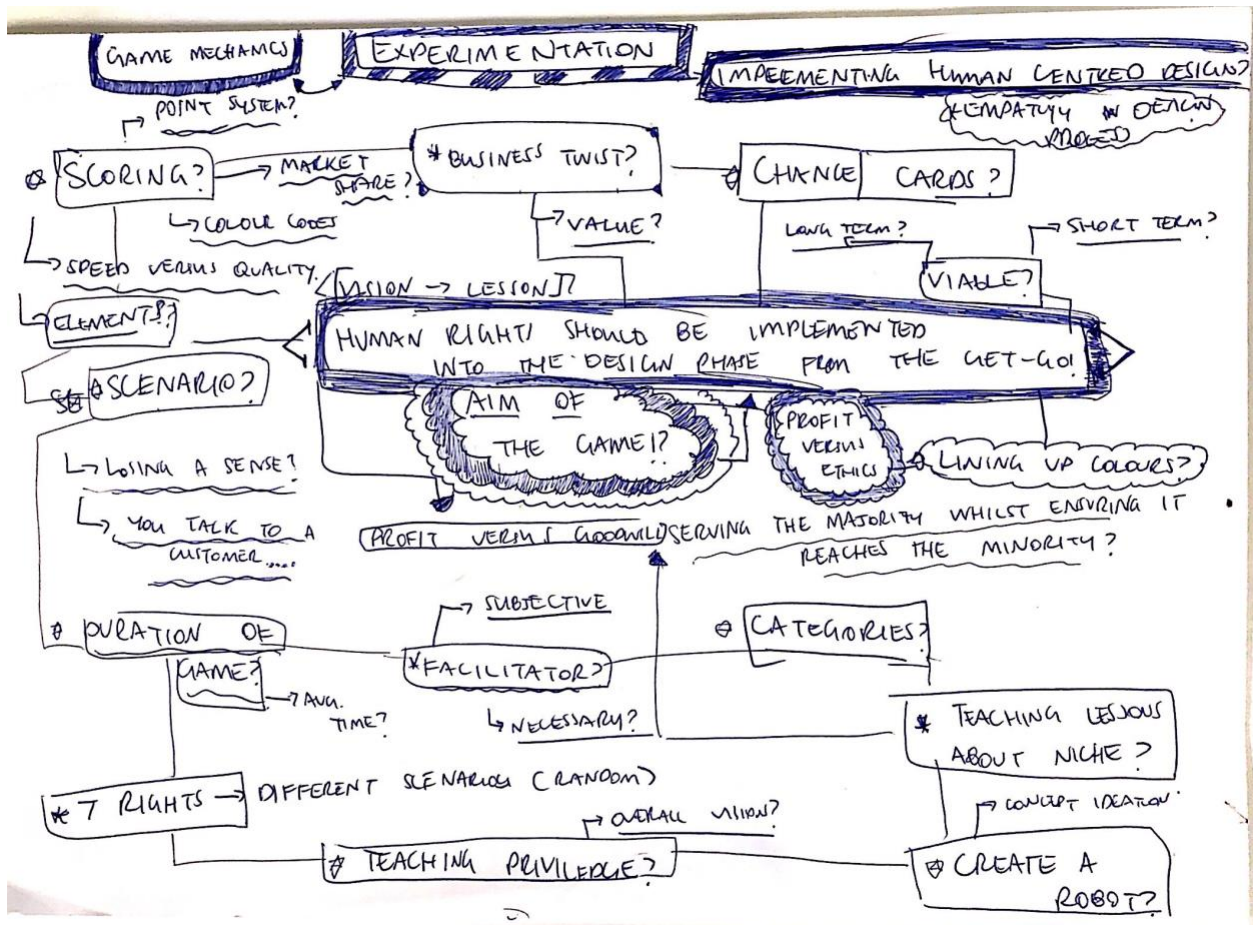 GAME MECHANICS
EXPERIMENTATION
IMPLEMENTING HUMAN CENTRED DESIGN?
* EMPATHY IN DESIGN
PROCESS
POINT SYSTEM?
* SCORING?
MARKET
SHARE?
* BUSINESS TWIST?
* CHANCE CARDS?
COLOUR CODES
VALUE?
LONG TERM?
SHORT TERM?
SPEED VERSUS QUALITY.
[VISION → LESSON]?
VIABLE?
ELEMENTS?
HUMAN RIGHTS SHOULD BE IMPLEMENTED
INTO THE DESIGN PHASE FROM THE GET-GO!
* SCENARIO?
AIM OF
THE GAME!?
PROFIT
VERSUS
ETHICS
LINING UP COLOURS?
LOSING A SENSE?
YOU TALK TO A
CUSTOMER....
PROFIT VERSUS GOODWILL
SERVING THE MAJORITY WHILST ENSURING IT
REACHES THE MINORITY?
* DURATION OF
GAME?
AVG.
TIME?
SUBJECTIVE
* FACILITATOR?
NECESSARY?
* CATEGORIES?
* TEACHING LESSONS
ABOUT NICHE?
* 7 RIGHTS → DIFFERENT SCENARIOS (RANDOM)
OVERALL VISION?
* TEACHING PRIVILEDGE?
CONCEPT IDEATION
* CREATE A
ROBOT?